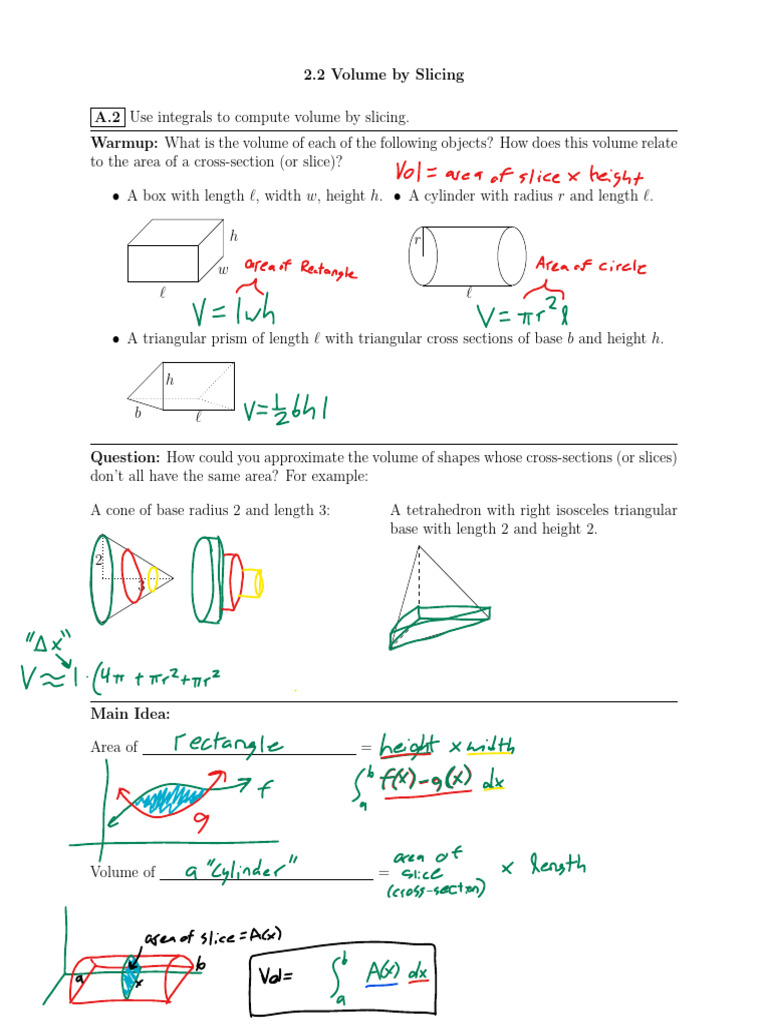 2.2 Volume by Slicing
A.2 Use integrals to compute volume by slicing.
Warmup: What is the volume of each of the following objects? How does this volume relate
to the area of a cross-section (or slice)?
Vol = area of slice x height
• A box with length ℓ, width w, height h. • A cylinder with radius r and length ℓ.
h
r
w
area of Rectangle
Area of circle
ℓ
ℓ
V = lwh
V = πr²l
• A triangular prism of length ℓ with triangular cross sections of base b and height h.
h
b
ℓ
V = 1/2 bhl
Question: How could you approximate the volume of shapes whose cross-sections (or slices)
don't all have the same area? For example:
A cone of base radius 2 and length 3:
A tetrahedron with right isosceles triangular
base with length 2 and height 2.
2
3
"Δx"
V ≈ 1·(4π + πr² + πr²
Main Idea:
Area of rectangle = height x width
f
g
∫ₐᵇ f(x) - g(x) dx
Volume of a "cylinder" = area of slice (cross-section) x length
area of slice = A(x)
a
x
b
Vol = ∫ₐᵇ A(x) dx